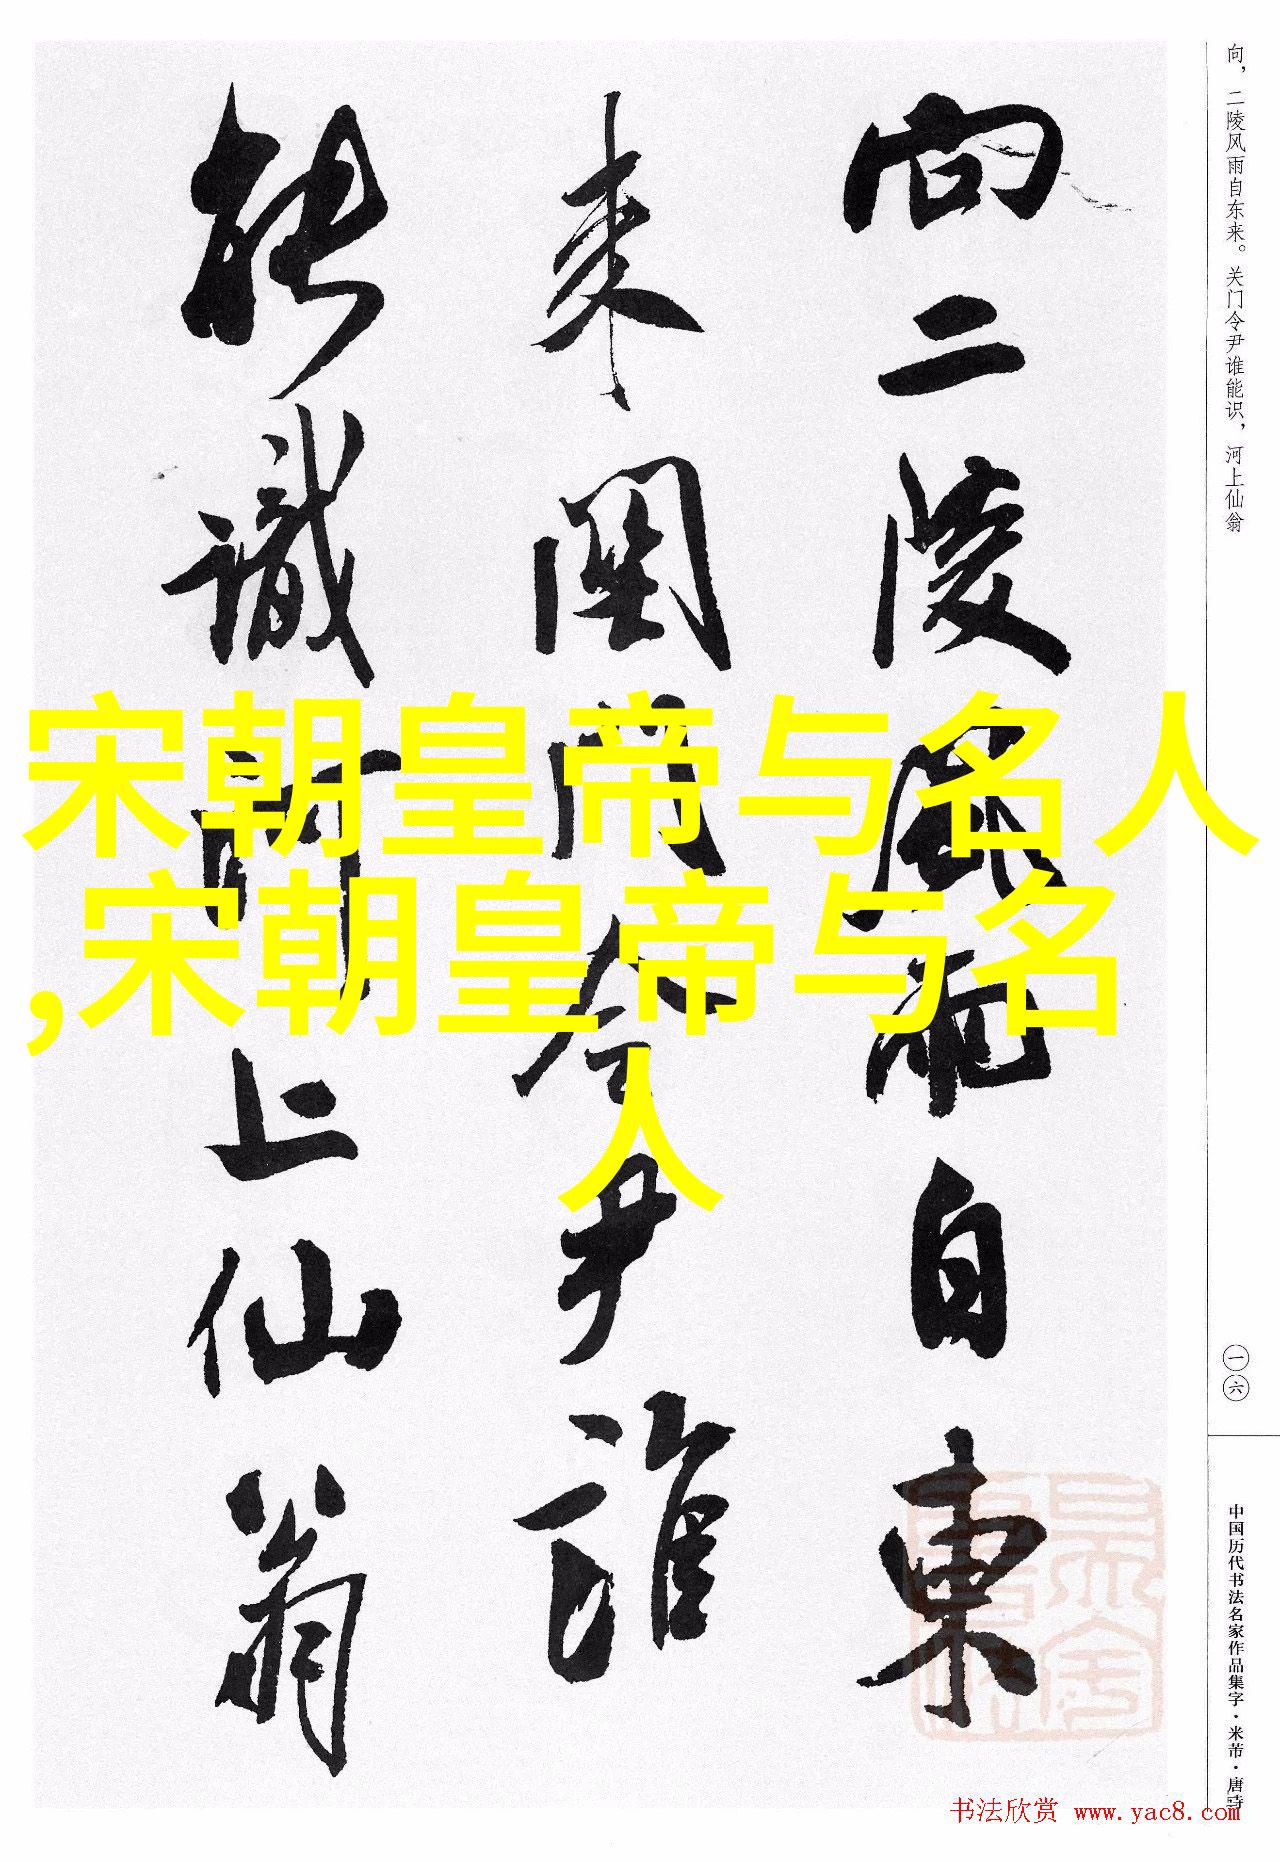 向二陵風雨自東
來關門令尹誰
能識河上仙翁
向，二陵风雨自东来。关门令尹谁能识，河上仙翁
一六
中国历代书法名家作品集字·米芾·唐诗
宋朝皇帝与名人
,宋朝皇帝与名
人
书法欣赏 www.yac8.com